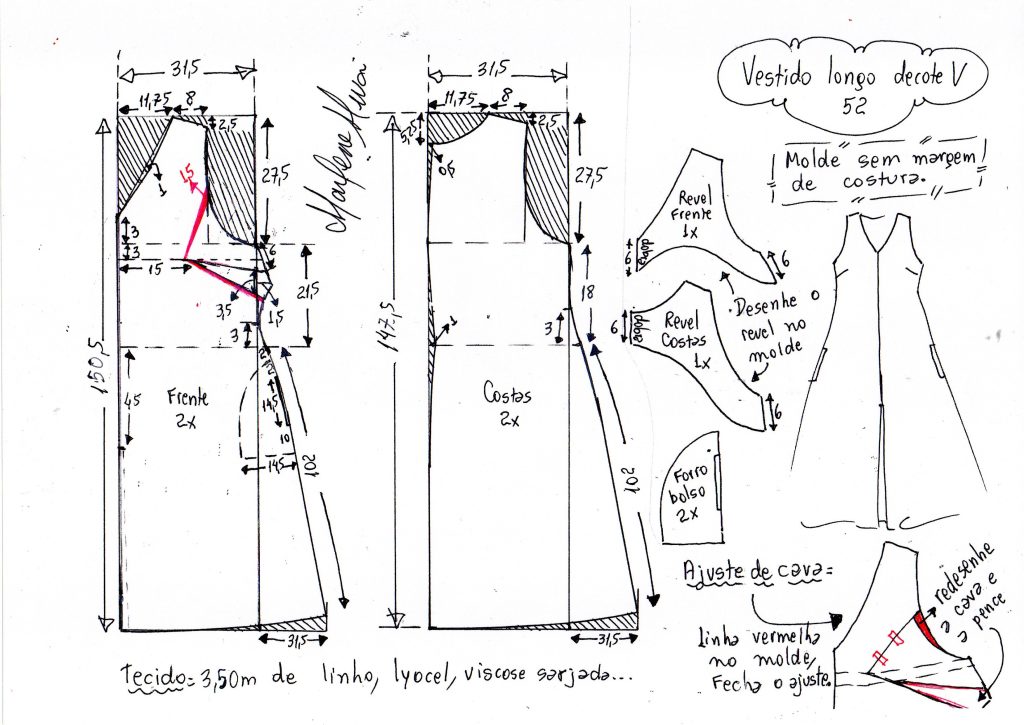 Vestido longo decote V
52
Molde sem margem
de costura.
31,5
11,75
8
2,5
27,5
1
1,5
3
3
15
6
3,5
1,5
21,5
3
150,5
45
Frente
2x
2
14,5
10
14,5
102
31,5
Marlene Mukai
31,5
11,75
8
2,5
5,25
0,6
27,5
147,5
18
3
1
Costas
2x
102
31,5
Revel
Frente
1x
dobra
6
6
Revel
Costas
1x
dobra
6
6
Desenhe o
revel no
molde
Forro
bolso
2x
Ajuste de cava=
Linha vermelha
no molde,
Fecha o ajuste.
redesenhe
a cava e
a pence
Tecido= 3,50m de linho, lyocel, viscose sarjada...